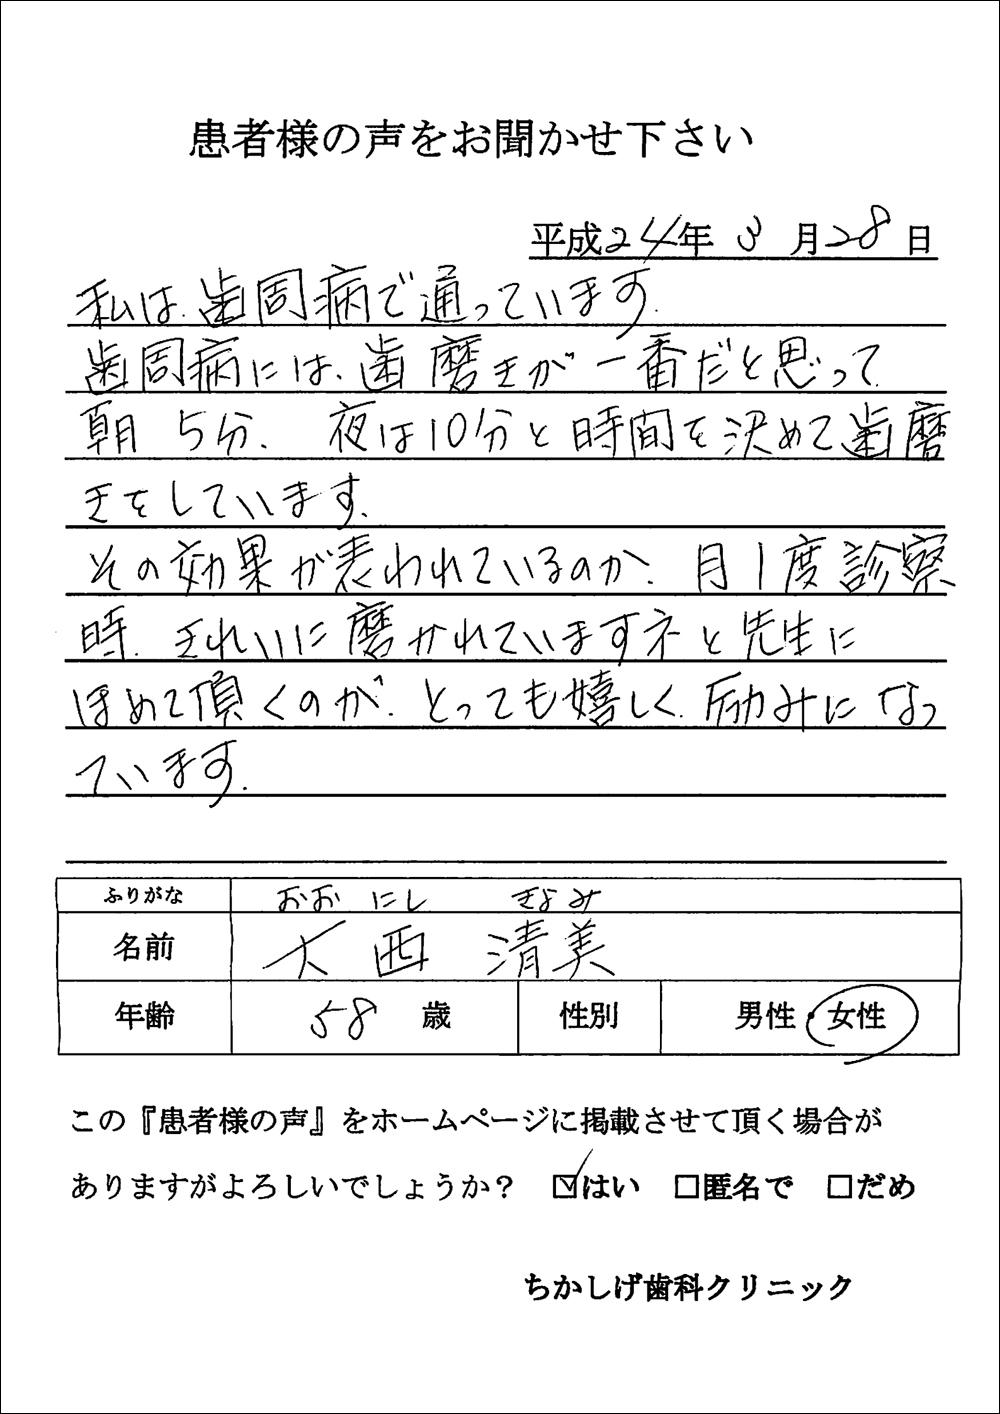 患者様の声をお聞かせ下さい
平成24年 3 月28日
私は、歯周病で通っています。
歯周病には、歯磨きが一番だと思って
朝 5分、 夜は10分と時間を決めて歯磨
きをしています。
その効果が表われているのか、月1度診察
時、きれいに磨かれていますネと先生に
ほめて頂くのが、とっても嬉しく、励みになっ
ています。
ふりがな おおにし きよみ
名前 大西 清美
年齢 58 歳 性別 男性・女性
この『患者様の声』をホームページに掲載させて頂く場合が
ありますがよろしいでしょうか? ☑はい □匿名で □だめ
ちかしげ歯科クリニック